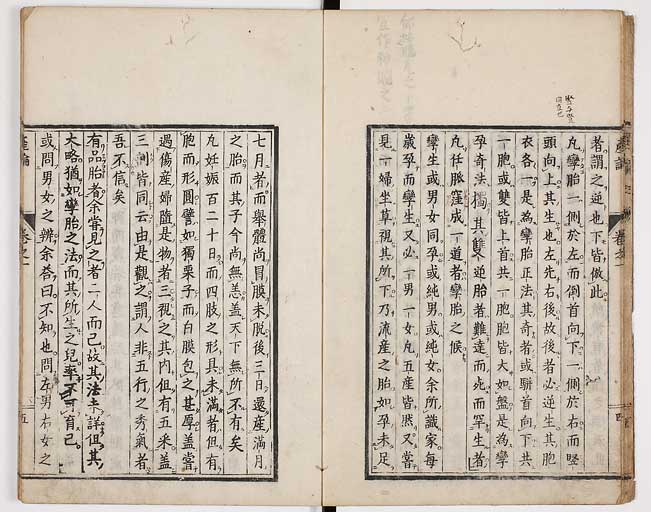 者謂之逆也下皆倣此
凡孿胎一側於左而倒首向下一側於右而竪
頭向上其生也左先右後故後者必逆生其胞
衣各一是為孿胎正法其奇者或駢首向下共
一胞或雙皆上首共一胞胞皆大如盤是為孿
孕奇法獨其雙逆胎者難達而死而罕生者
凡任脈窪成一道者孿胎之候
孿生或男女同孕或純男或純女余所識家每
歳孕而孿生又必一男一女凡五産皆然又嘗
見一婦坐草視其所下乃流産之胎如孕未足
七月者而舉體尚冒膜未脱後三日還産滿月
之胎而其子今尚無恙蓋天下無所不有矣
凡妊娠百二十日而四肢之形具未滿者但有
胞而形圓譬如獨栗子而白膜包之甚厚蓋嘗
過傷産婦墮是物者三視之其内但有五采蓋
三洞皆同云由是觀之謂人非五行之秀氣者
吾不信矣
有品胎者余嘗見之者二人而已故其法未詳但其
大略猶如孿胎之法而其所生之兒
或問男女之辨余荅曰不知也問左男右女之
卷之一
四
五